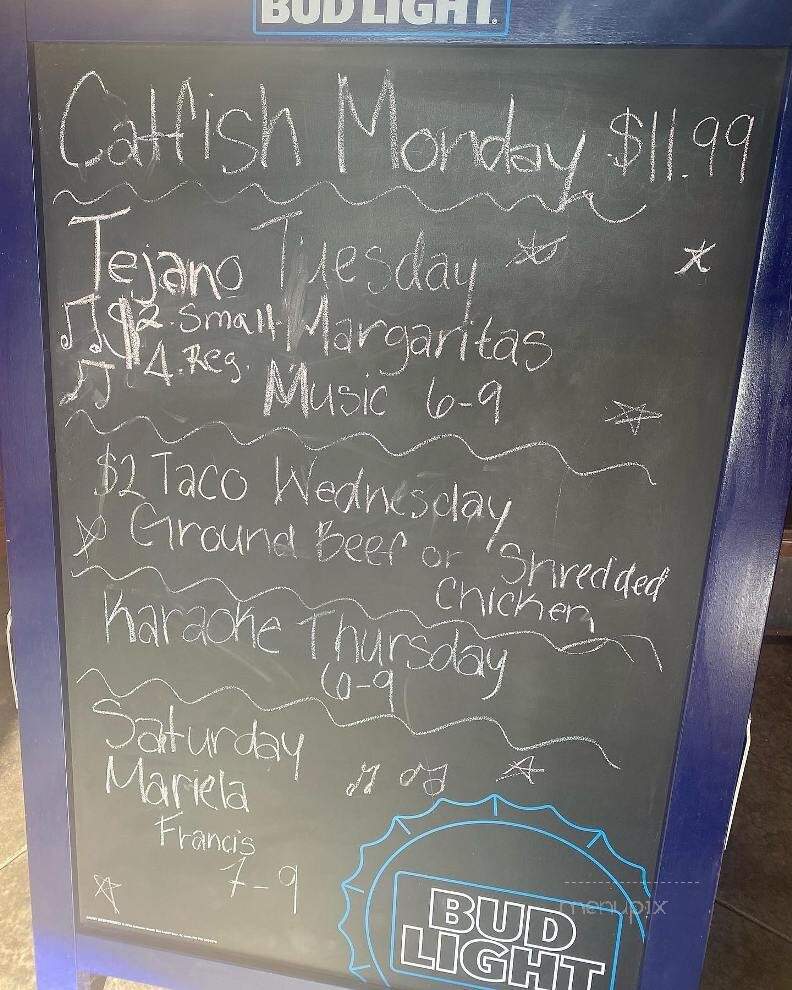 BUD LIGHT
Catfish Monday $11.99
Tejano Tuesday
2. Small Margaritas
4. Reg.
Music 6-9
$2 Taco Wednesday
Ground Beef or Shredded
Chicken
Karaoke Thursday
6-9
Saturday
Mariela
Francis
7-9
menupix
BUD
LIGHT